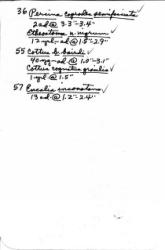 36 Percina caprodes semifasciata ✓
2 ad @ 3.3"-3.4"
Etheostoma n. nigrum ✓
17 yl-ad @ 1.5"-2.9"
55 Cottus b. bairdi ✓
40 yg-ad @ 1.0"-3.1"
Cottus cognatus gracilis ✓
1 yl @ 1.5"
57 Eucalia inconstans ✓
13 ad @ 1.2"-2.4"